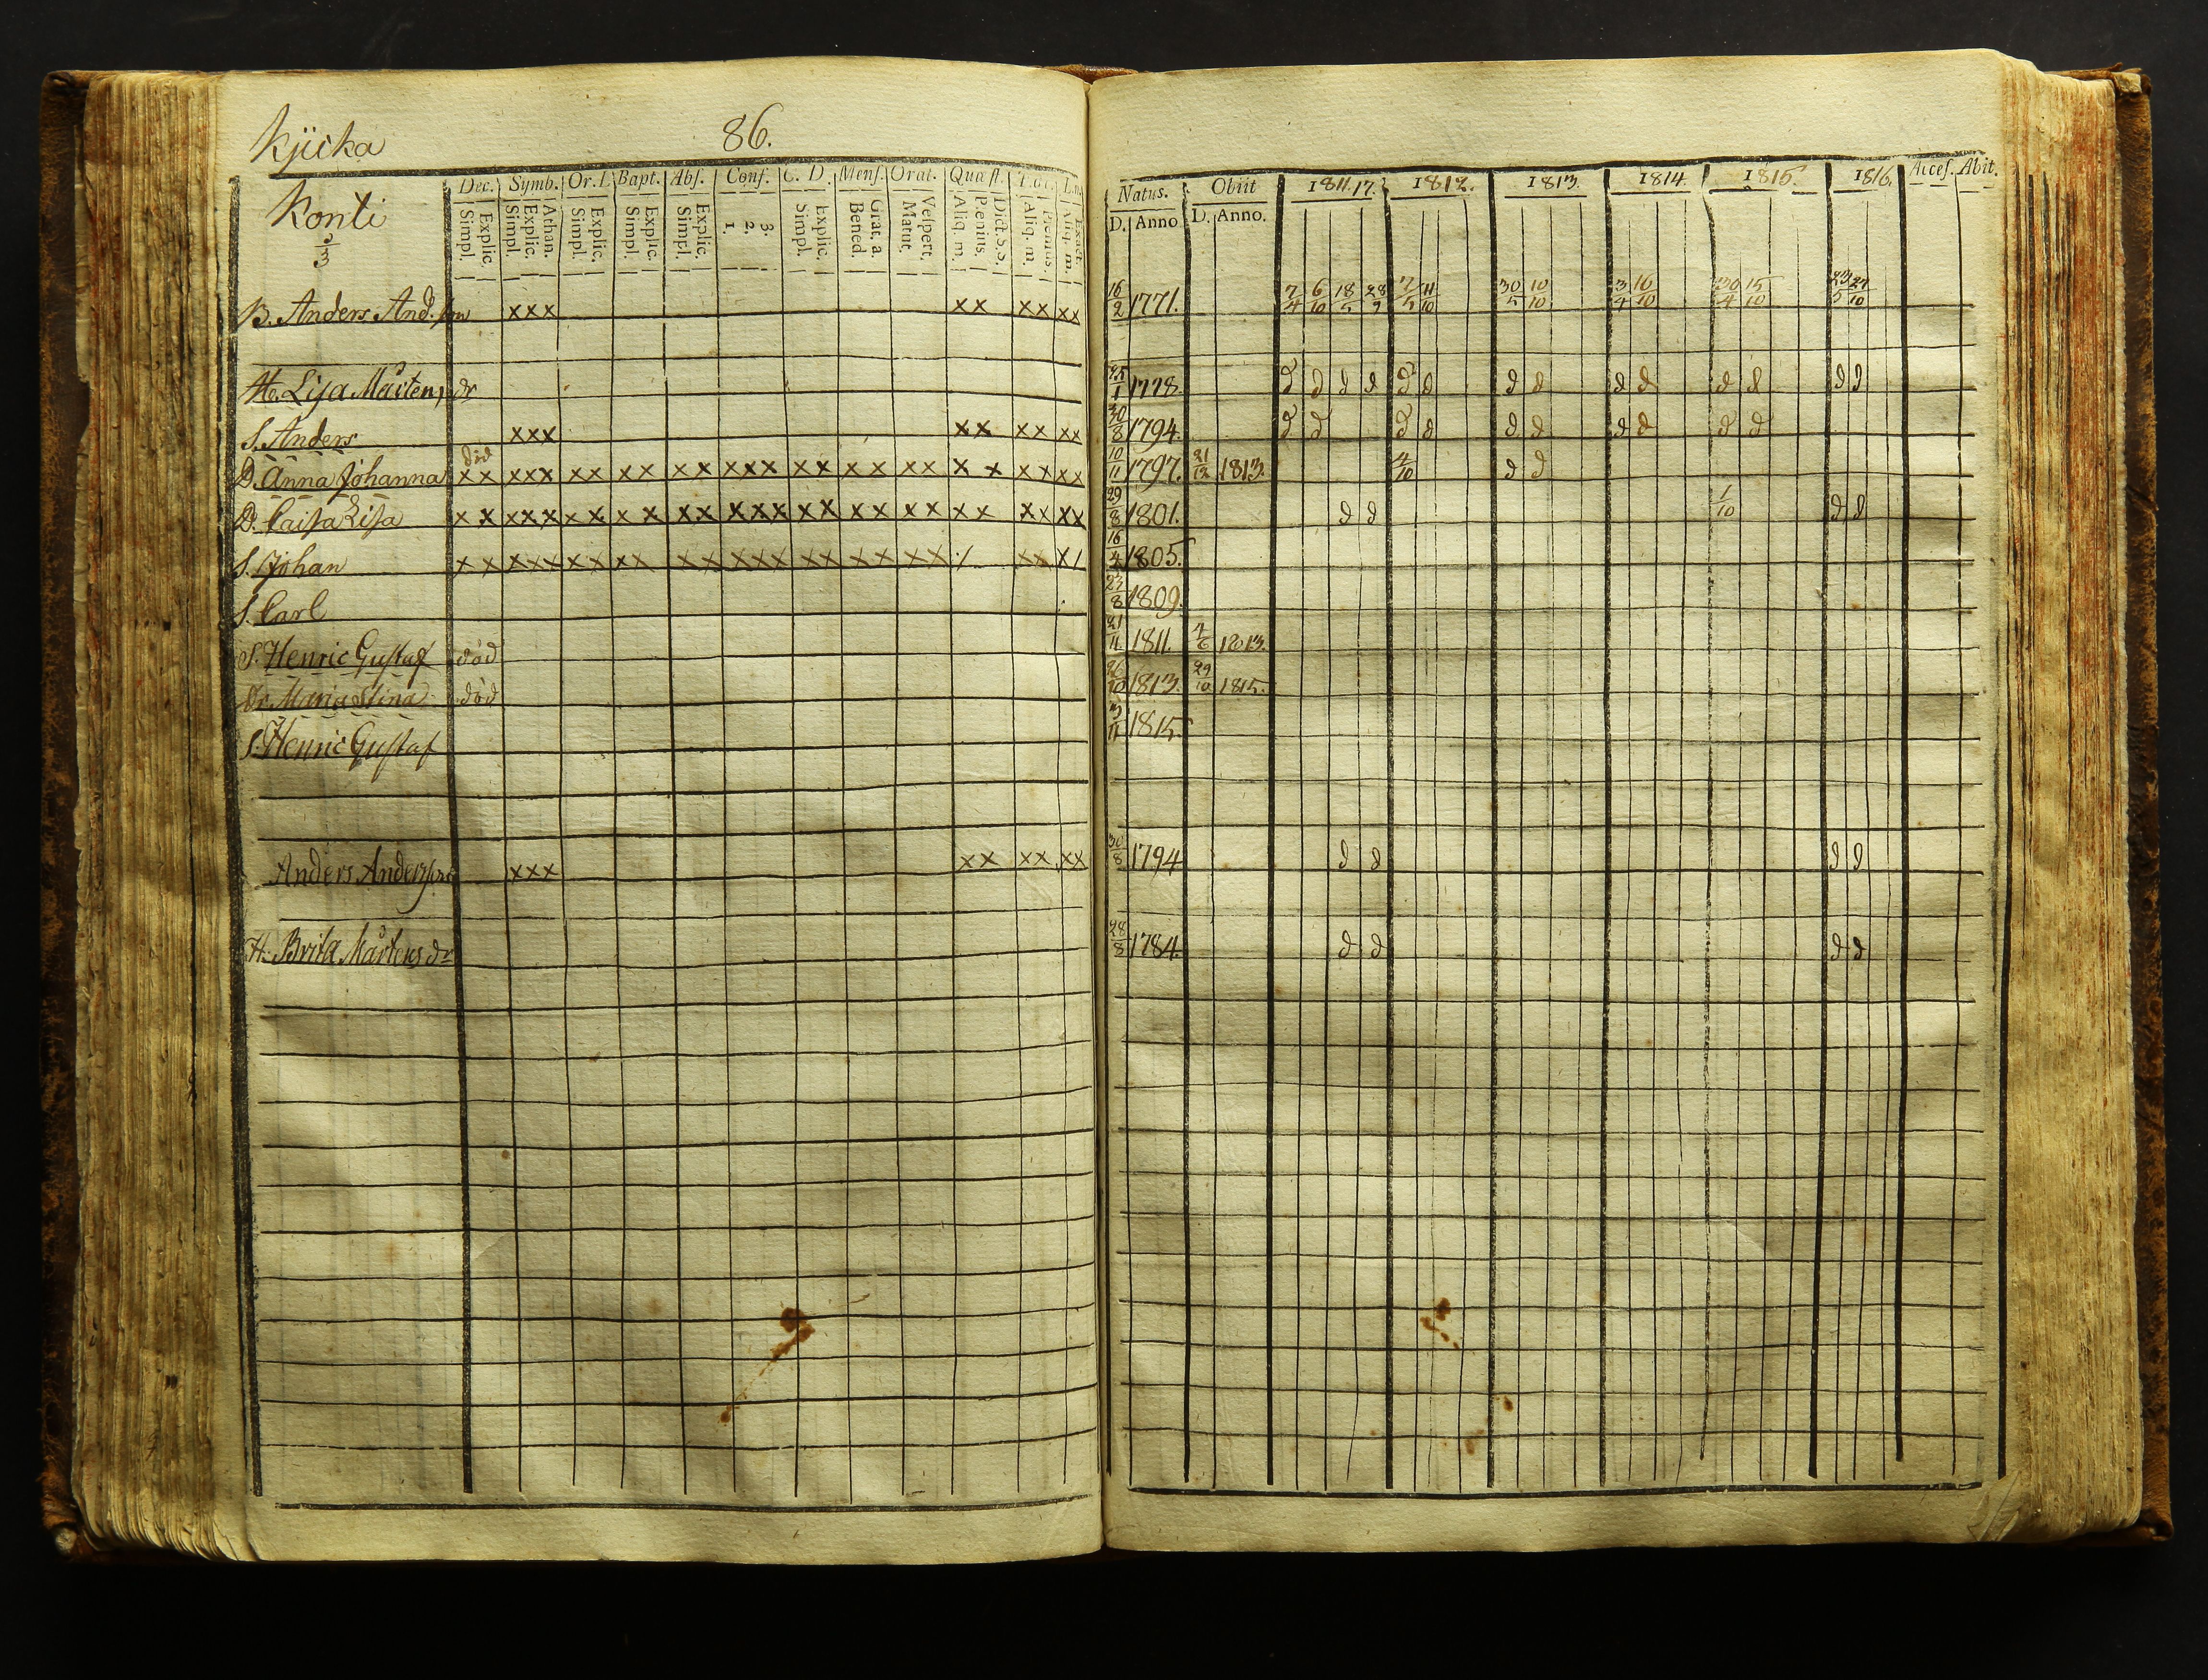 Kjicka 86.
Konti
2/3
Dec. Symb. Or. D. Bapt. Abs. Conf. C. D. Mens. Orat. Quæst.
Simpl. Explic. Simpl. Explic. Athan. Simpl. Explic. Simpl. Explic. Simpl. Explic. 1. 2. 3. Simpl. Explic. Bened. Grat. a. Matut. Vespert. Aliq. m. Plenius. Dict. S. S. Aliq. m. Plenius. Aliq. m. Exact.
Natus. Obiit 1811.17. 1812. 1813. 1814. 1815. 1816. Acces. Abit.
D. Anno D. Anno.
B. Anders And. son xxx xx xx xx 16/2 1771. 7/4 6/10 18/5 28/9 7/5 11/10 30/5 10/10 3/4 16/10 30/4 15/10 23/5 27/10
H. Lisa Mårtens dr 25/1 1778. d d d d d d d d d d d d d d
S. Anders xxx xx xx xx 30/8 1794. d d d d d d d d d d
död
D. Anna Johanna xx xxx xx xx xx xxx xx xx xx xx xx xx 10/11 1797. 21/12 1813. 4/10 d d
D. Caisa Lisa xx xxx xx xx xx xxx xx xx xx xx xx xx 29/8 1801. d d 1/10 d d
S. Johan xx xxx xx xx xx xxx xx xx xx / xx x/ 16/4 1805.
S. Carl 23/8 1809.
S. Henric Gustaf död 21/11 1811. 4/6 1813.
Dr. Maria Stina död 26/10 1813. 29/10 1815.
S. Henric Gustaf 3/11 1815.
Anders Andersson xxx xx xx xx 30/8 1794 d d d d
H. Brita Mårtens dr 28/8 1784. d d d d